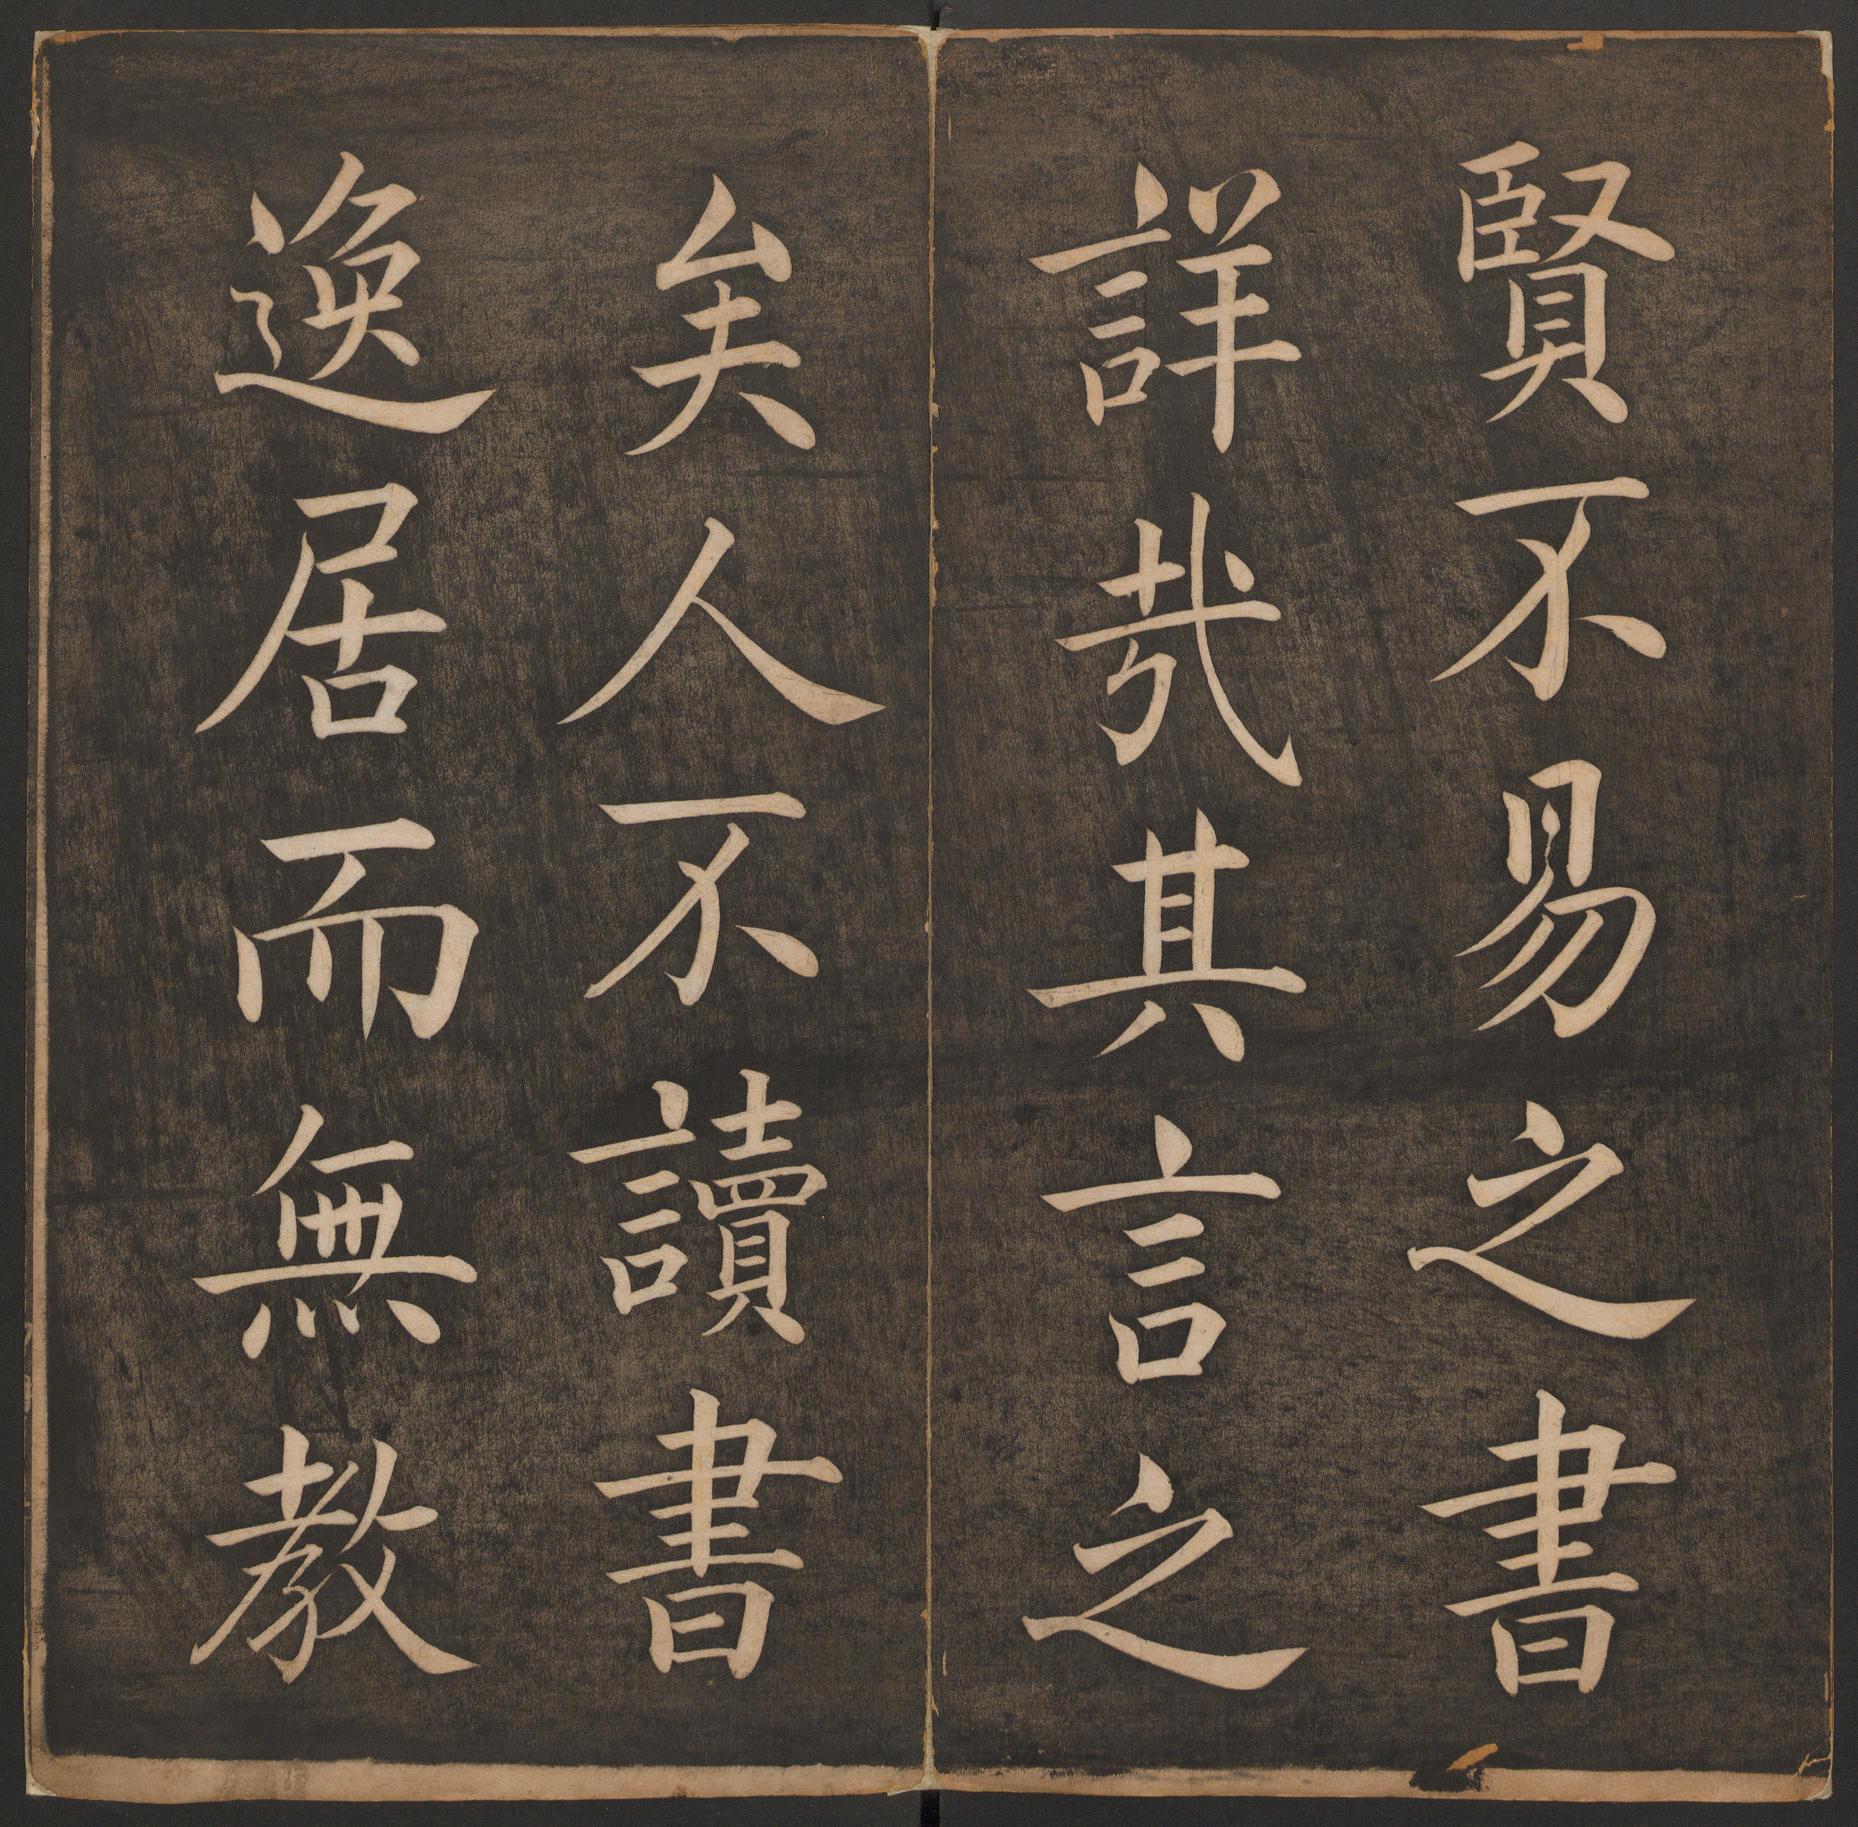 賢不易之書
詳哉其言之
矣人不讀書
逸居而無教